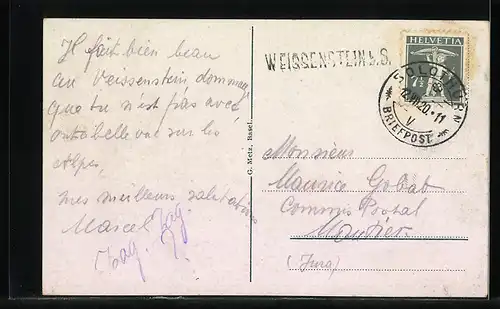 Il fait bien beau
au Veissenstein dommage
que tu n'est pas avec
vue sur les
Alpes
mes meilleurs salutations
Marcel
WEISSENSTEIN b. S.
G. Metz, Basel.
HELVETIA
7½
SOLOTHURN
20.-11
V
BRIEFPOST
Monsieur
Maurice Gobat
Commis Postal
Moutier
(Jura)